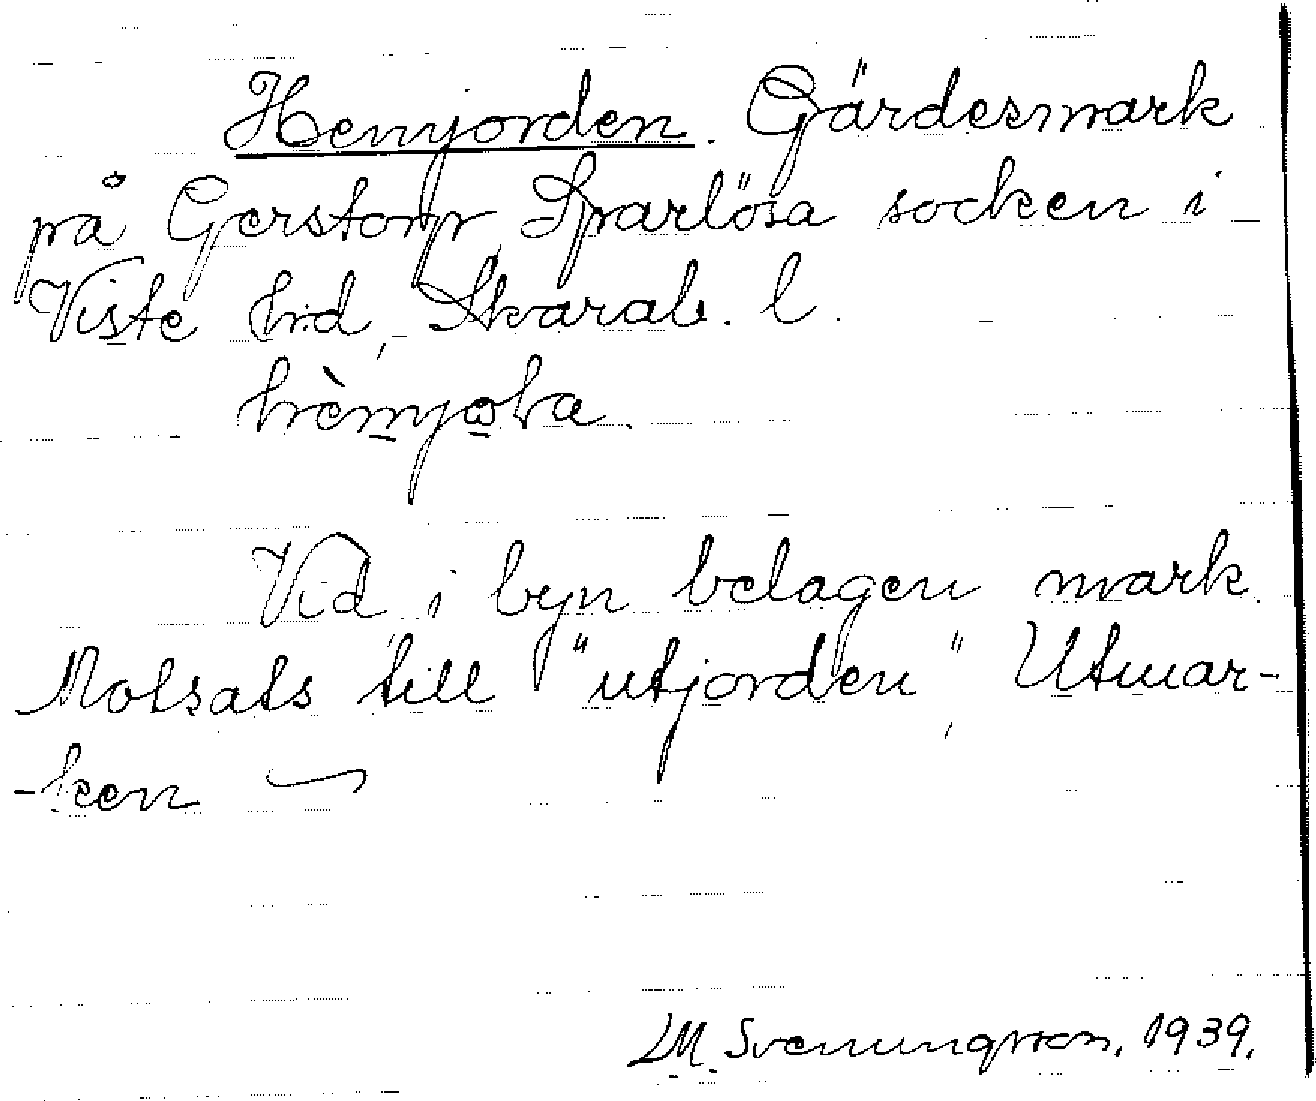 Hemjorden. Gärdesmark
på Gerstorp, Sparlösa socken i
Viste hrd, Skarab. l.
Vid i byn belagen mark
Motsats till "utjorden", Utmar-
-ken
LM. Svenungsson. 1939.